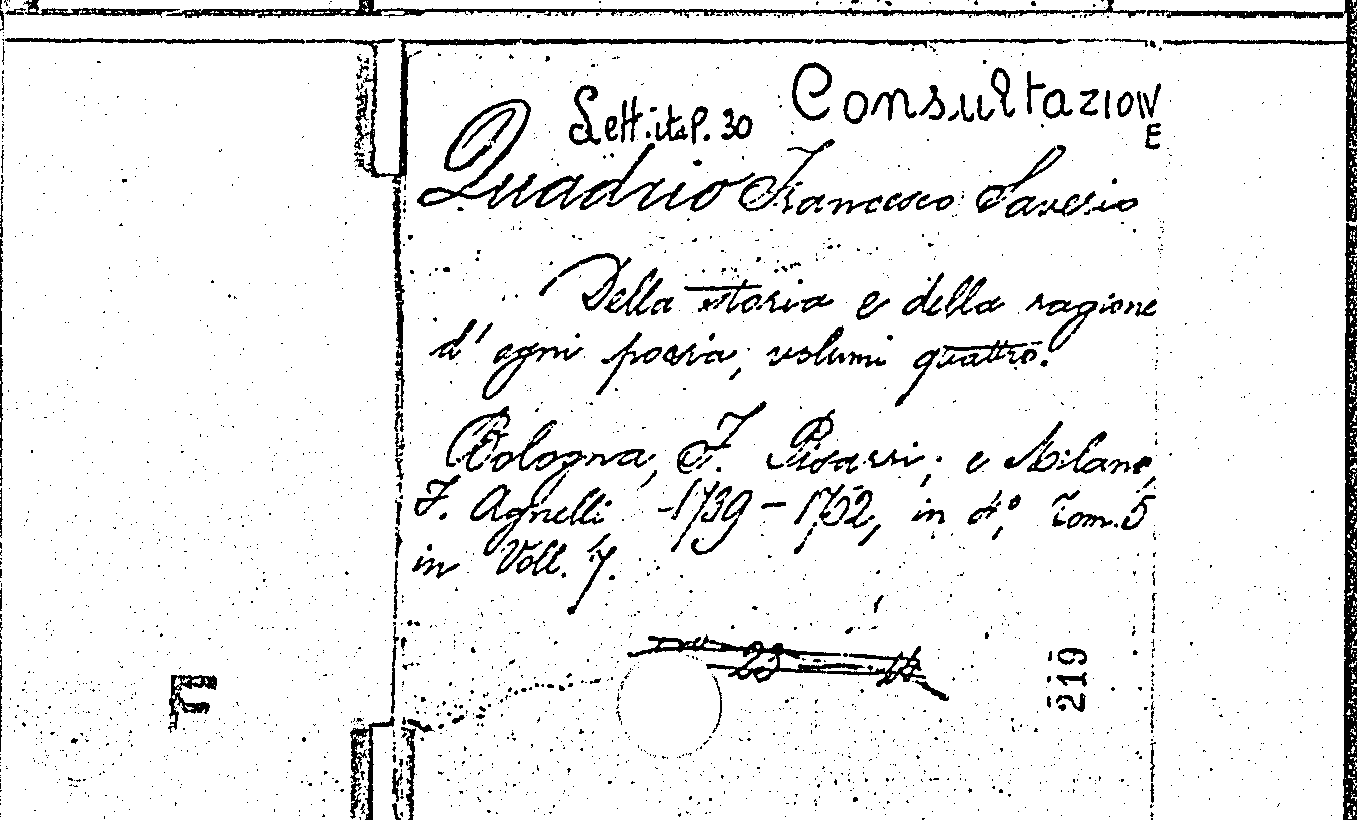 Consultazione
Lett.ital. 30
Quadrio Francesco Saverio
Della storia e della ragione
d'ogni poesia, volumi quattro.
Bologna, F. Pisarri; e Milano,
F. Agnelli 1739-1752, in 4°, Tom. 5
in Voll. 7.
219
F